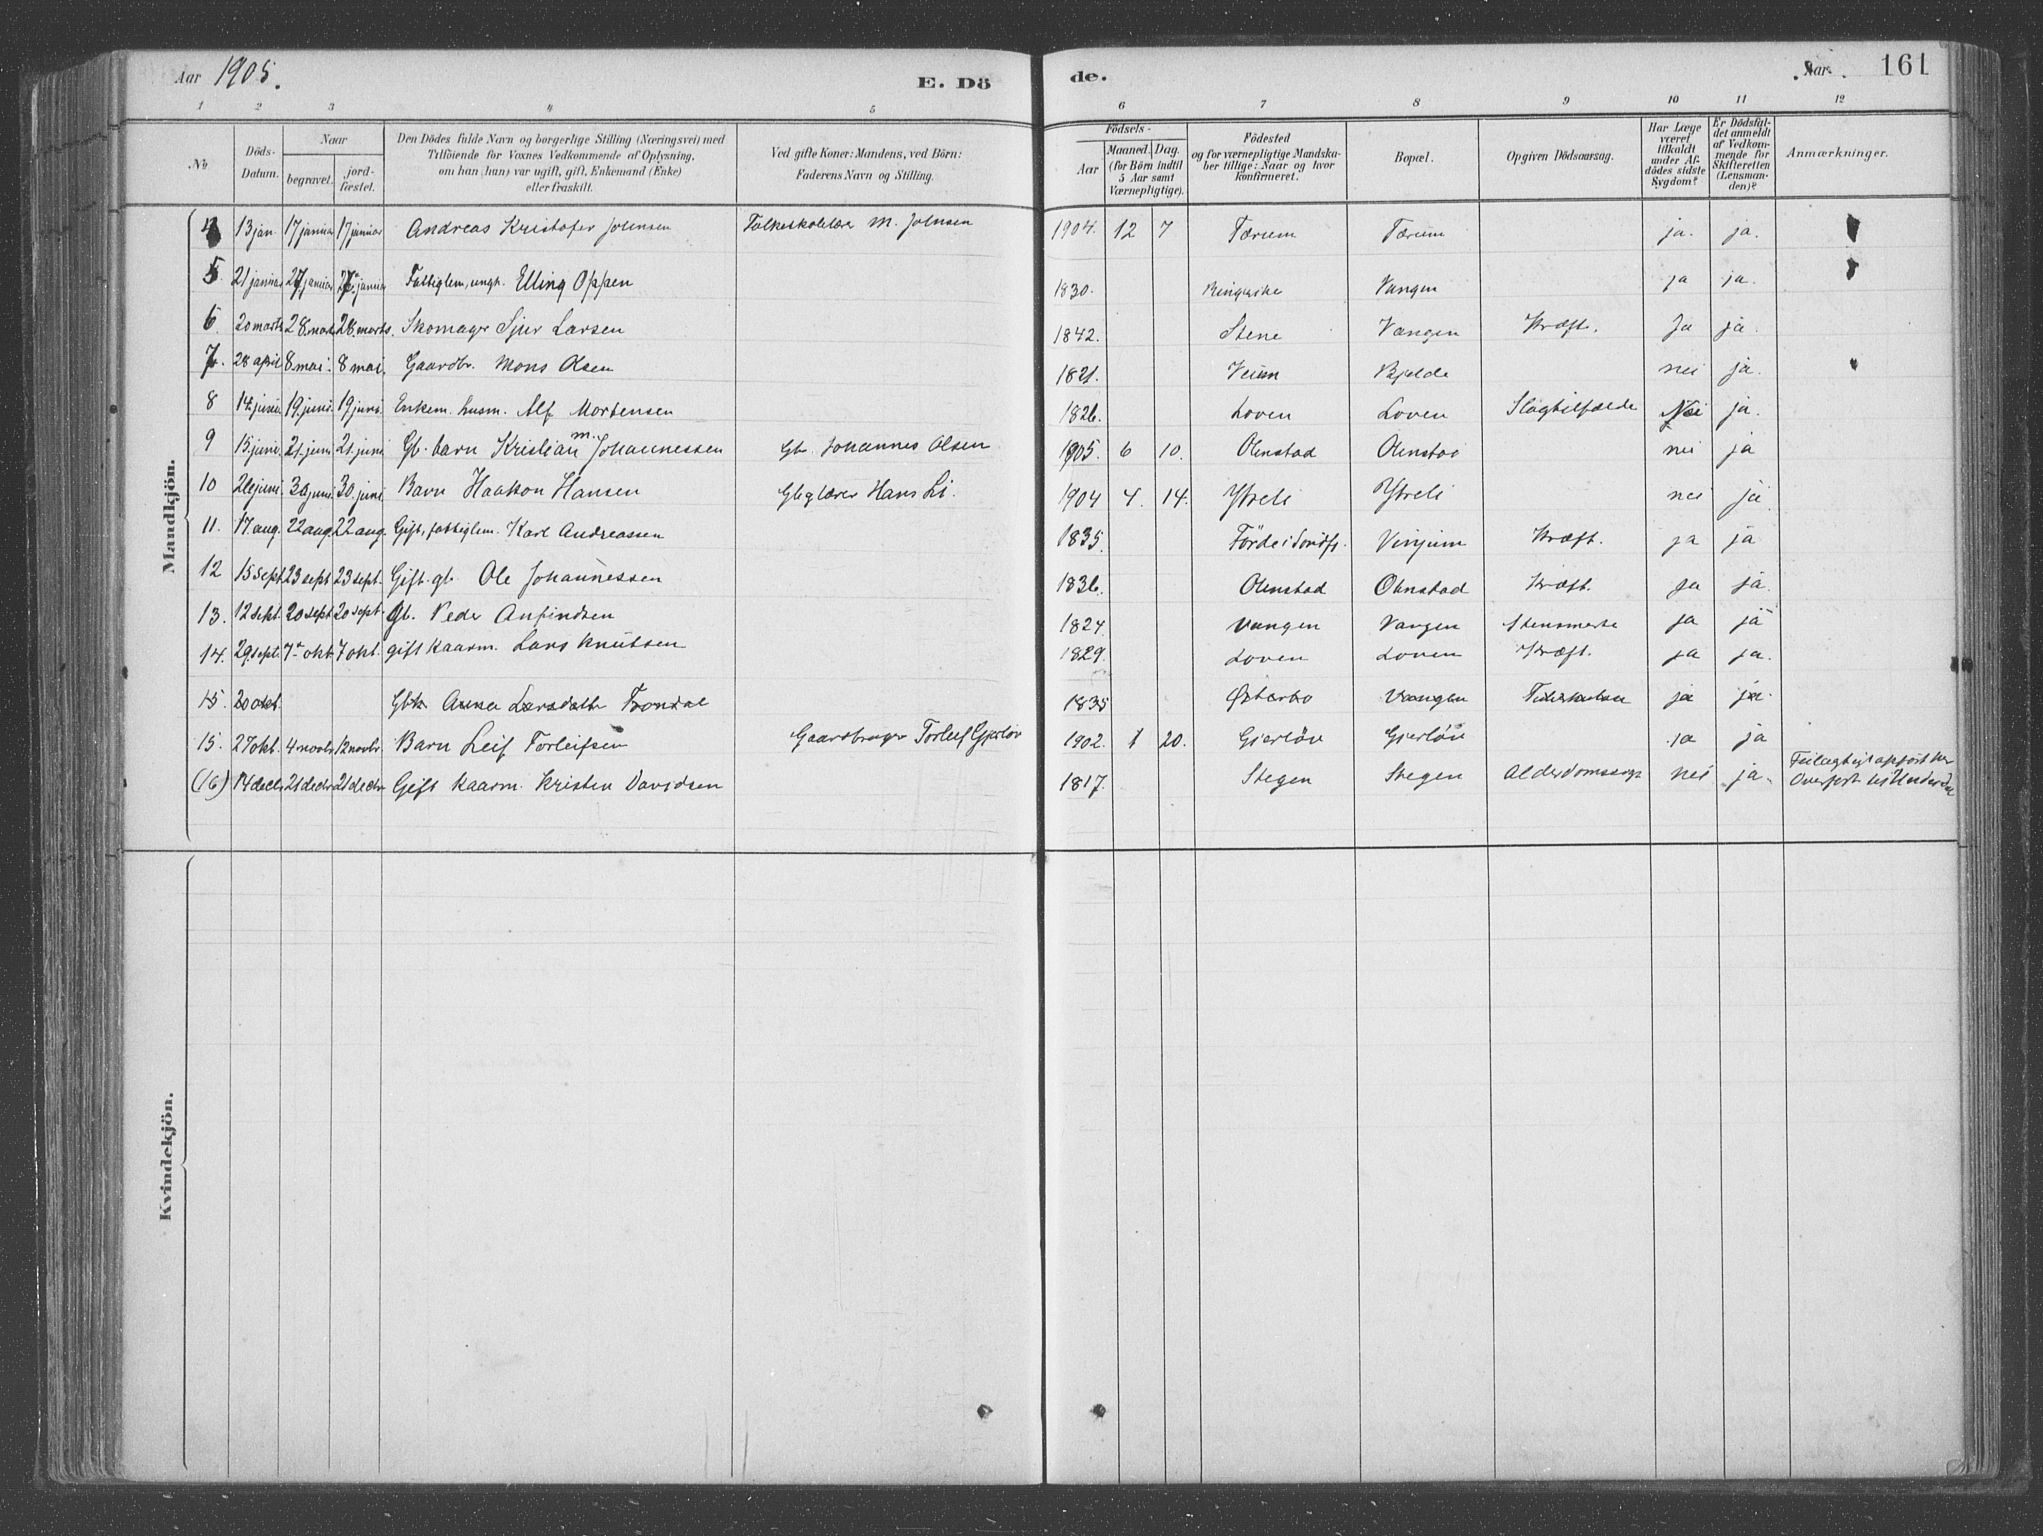 Aar 1905.
E. Döde.
Aar
161
1 2 3 4 5 6 7 8 9 10 11 12
No
Döds-Datum.
Naar
begravet.
jordfæstet.
Den Dödes fulde Navn og borgerlige Stilling (Næringsvei) med Tilföiende for Voxnes Vedkommende af Oplysning, om han (hun) var ugift, gift, Enkemand (Enke) eller fraskilt.
Ved gifte Koner: Mandens, ved Börn: Faderens Navn og Stilling.
Födsels-
Aar
Maaned. Dag.
(for Börn indtil 5 Aar samt Værnepligtige).
Födested og for værnepligtige Mandskaber tillige: Naar og hvor konfirmeret.
Bopæl.
Opgiven Dödsaarsag.
Har Læge været tilkaldt under Afdödes sidste Sygdom?
Er Dödsfaldet anmeldt af Vedkommende for Skifteretten (Lensmanden)?
Anmærkninger.
Mandkjön.
4 13 jan 17 januar 17 januar Andreas Kristofer Johnsen Folkeskolelærer M. Johnsen 1904. 12 7 Tærum Tærum ja. ja.
5. 21 januar 27 januar 27 januar Fattiglem, ungk. Elling Oppen 1830. Ringerike Vangen ja ja.
6. 20 marts 28. marts 28. marts. Skomager Sjur Larsen 1842. Stene Vangen Kræft. Ja ja.
7. 28 april 8 mai. 8 mai. Gaardbr. Mons Olsen 1821. Veum Bjelde nei ja.
8 14. juni. 19. juni. 19 juni. Enkem. husm. Alf Mortensen 1826. Loven Loven Slagtilfælde Nei ja.
9 15. juni. 21. juni 21. juni Gb. barn Kristian M. Johannessen Gb. Johannes Olsen 1905. 6 10. Olnstad Olnstad nei ja
10 26 juni. 30 juni. 30. juni Barn Haakon Hansen Hans Li. 1904 4. 14. Ytreli Ytreli nei ja.
11. 17 aug. 22 aug. 22 aug. Gift, fattiglem. Karl Andreassen 1835. Förde i Söndfj. Vinjum Kræft. ja ja
12 15 sept. 23 sept 23 sept. Gift. gb. Ole Johannessen 1836. Olnstad Olnstad Kræft. ja ja.
13. 12 sept. 20 sept 20 sept. Gb. Peder Anfindsen 1824. Vangen Vangen Stensmerte ja ja
14. 29. sept. 7 okt. 7 okt. gift kaarm. Lars Knutsen 1829. Loven Loven Kræft. ja ja.
15. 20 okt. Gbk Anna Larsdatter Frondal 1835 Østerbo Vangen Tuberkulose ja ja.
15. 27 okt. 4 novbr 12 novbr. Barn Leif Torleifsen Gaardbruger Torleif Gjerløv 1902. 1 20. Gjerløv Gjerløv ja ja
(16) 14 decbr 21 decbr 21 decbr Gift kaarm. Kristen Davidsen 1817. Stegen Stegen Alderdomssvagh. nei ja. Feilagtig opført her
Overført til Underdal
Kvindekjön.